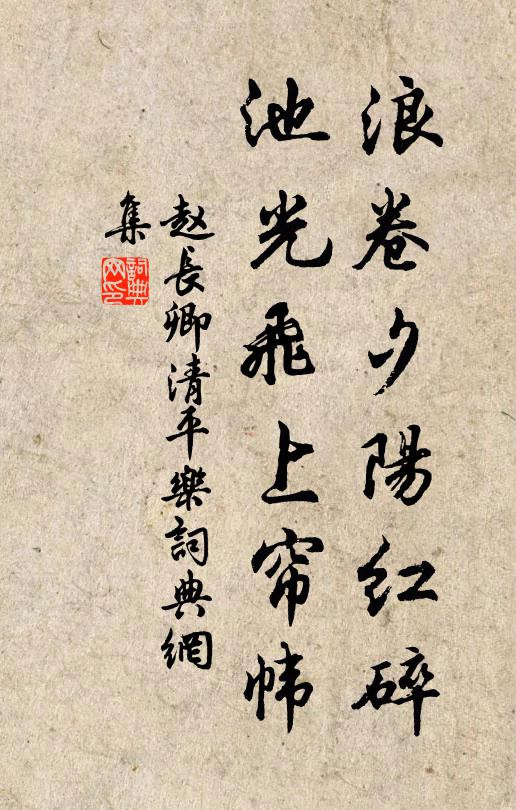 浪卷夕陽红碎
池光飛上帘帏
赵長卿清平樂詞典網
集
詞典网印